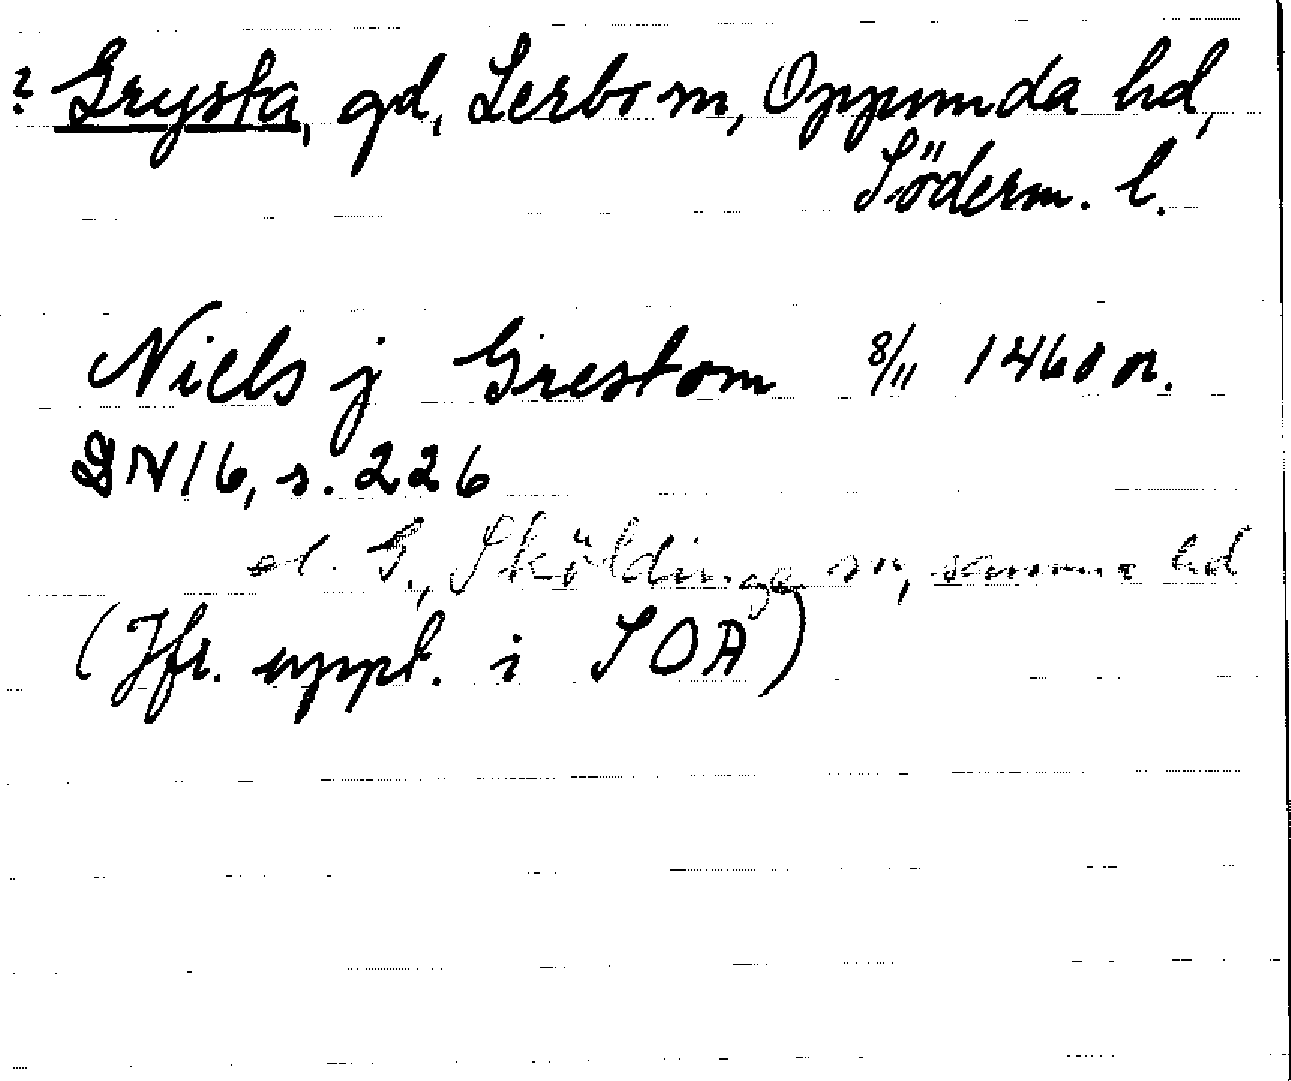 ? Grysta, gd, Lerbo sn, Oppunda hd,
Söderm. l.
Niels j Grestom 8/11 1460 or.
DN 16, s. 226
el. G., Sköldinge sn, samma hd
(Jfr. uppt. i SOA)